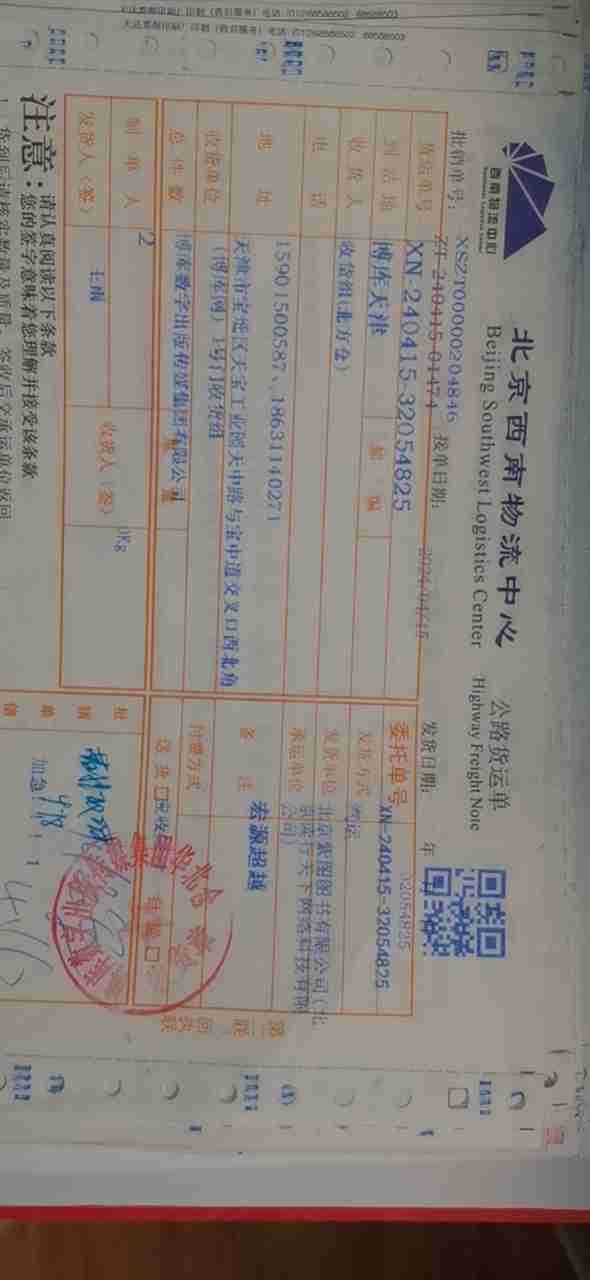 西南物流中心
Southwest Logistics Center
北京西南物流中心
公路货运单
Beijing Southwest Logistics Center
Highway Freight Note
批销单号：
XSZT00000204846
接单日期：
2024/04/15
发货日期：
年
ZT-240415-01474
货运单号
XN-240415-32054825
委托单号
XN-240415-32054825
32054825
到站地
博库天津
发货方式
汽运
收货人
收货组(北方仓)
发货单位
北京紫图图书有限公司(北
电话
15901500587、18631140271
承运单位
公司)
地址
天津市宝坻区天宝工业园天中路与宝中道交叉口西北角
(博库网) 1号门收货组
备注
宏源超越
收货单位
博库数字出版传媒集团有限公司
付费方式
总件数
2
Kg
送货
制单人
王雨
发货人（签）
收货人（签）
批
销
单
加急！！1
4.18
第二联 回执联
注意：
请认真阅读以下条款
您的签字意味着您理解并接受该条款